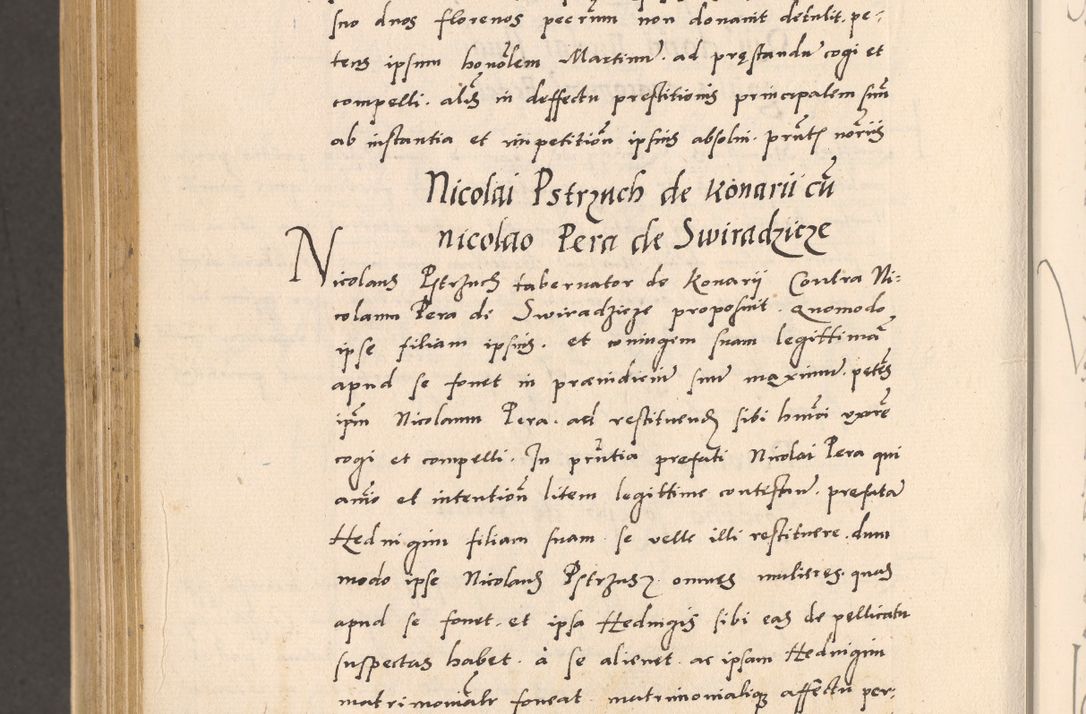 suo duos florenos pecunm non donavit detulit. pe-
tens ipsum honolem Martinum. ad pręstandum cogi et
compelli. alēs in deffectu prestitionis principalem suū
ab instantia et impetitiōn ipsius absolvi. prūtē nōriis
Nicolai Pstrzuch de Konarii cū
nicolao Pera de Swiradzicze
Nicolaus Pstrzuch tabernator de Konarij Contra Ni-
colaum Pera de Swiradzicze proposuit. Quomodo
ipse filiam ipsius. et coniugem suam legittimā
apud se fouet in præiudicium suum maximum. petēs
ipm̄ Nicolaum Pera. ad restituendum sibi hmōi uxorē
cogi et compelli. In prūtia prefati Nicolai Pera qui
animo et intentiōn litem legittime contestan. prefatā
Heduigim filiam suam se velle illi restituere. dum
modo ipse Nicolaus Pstrzusz. omnes mulieres. quas
apud se fouet. et ipsa Heduigis sibi eas de pellicatu
suspectas habet. à se alienet. ac ipsam Heduigim
matrimonialr foueat. matrimonialiqz affectu per-